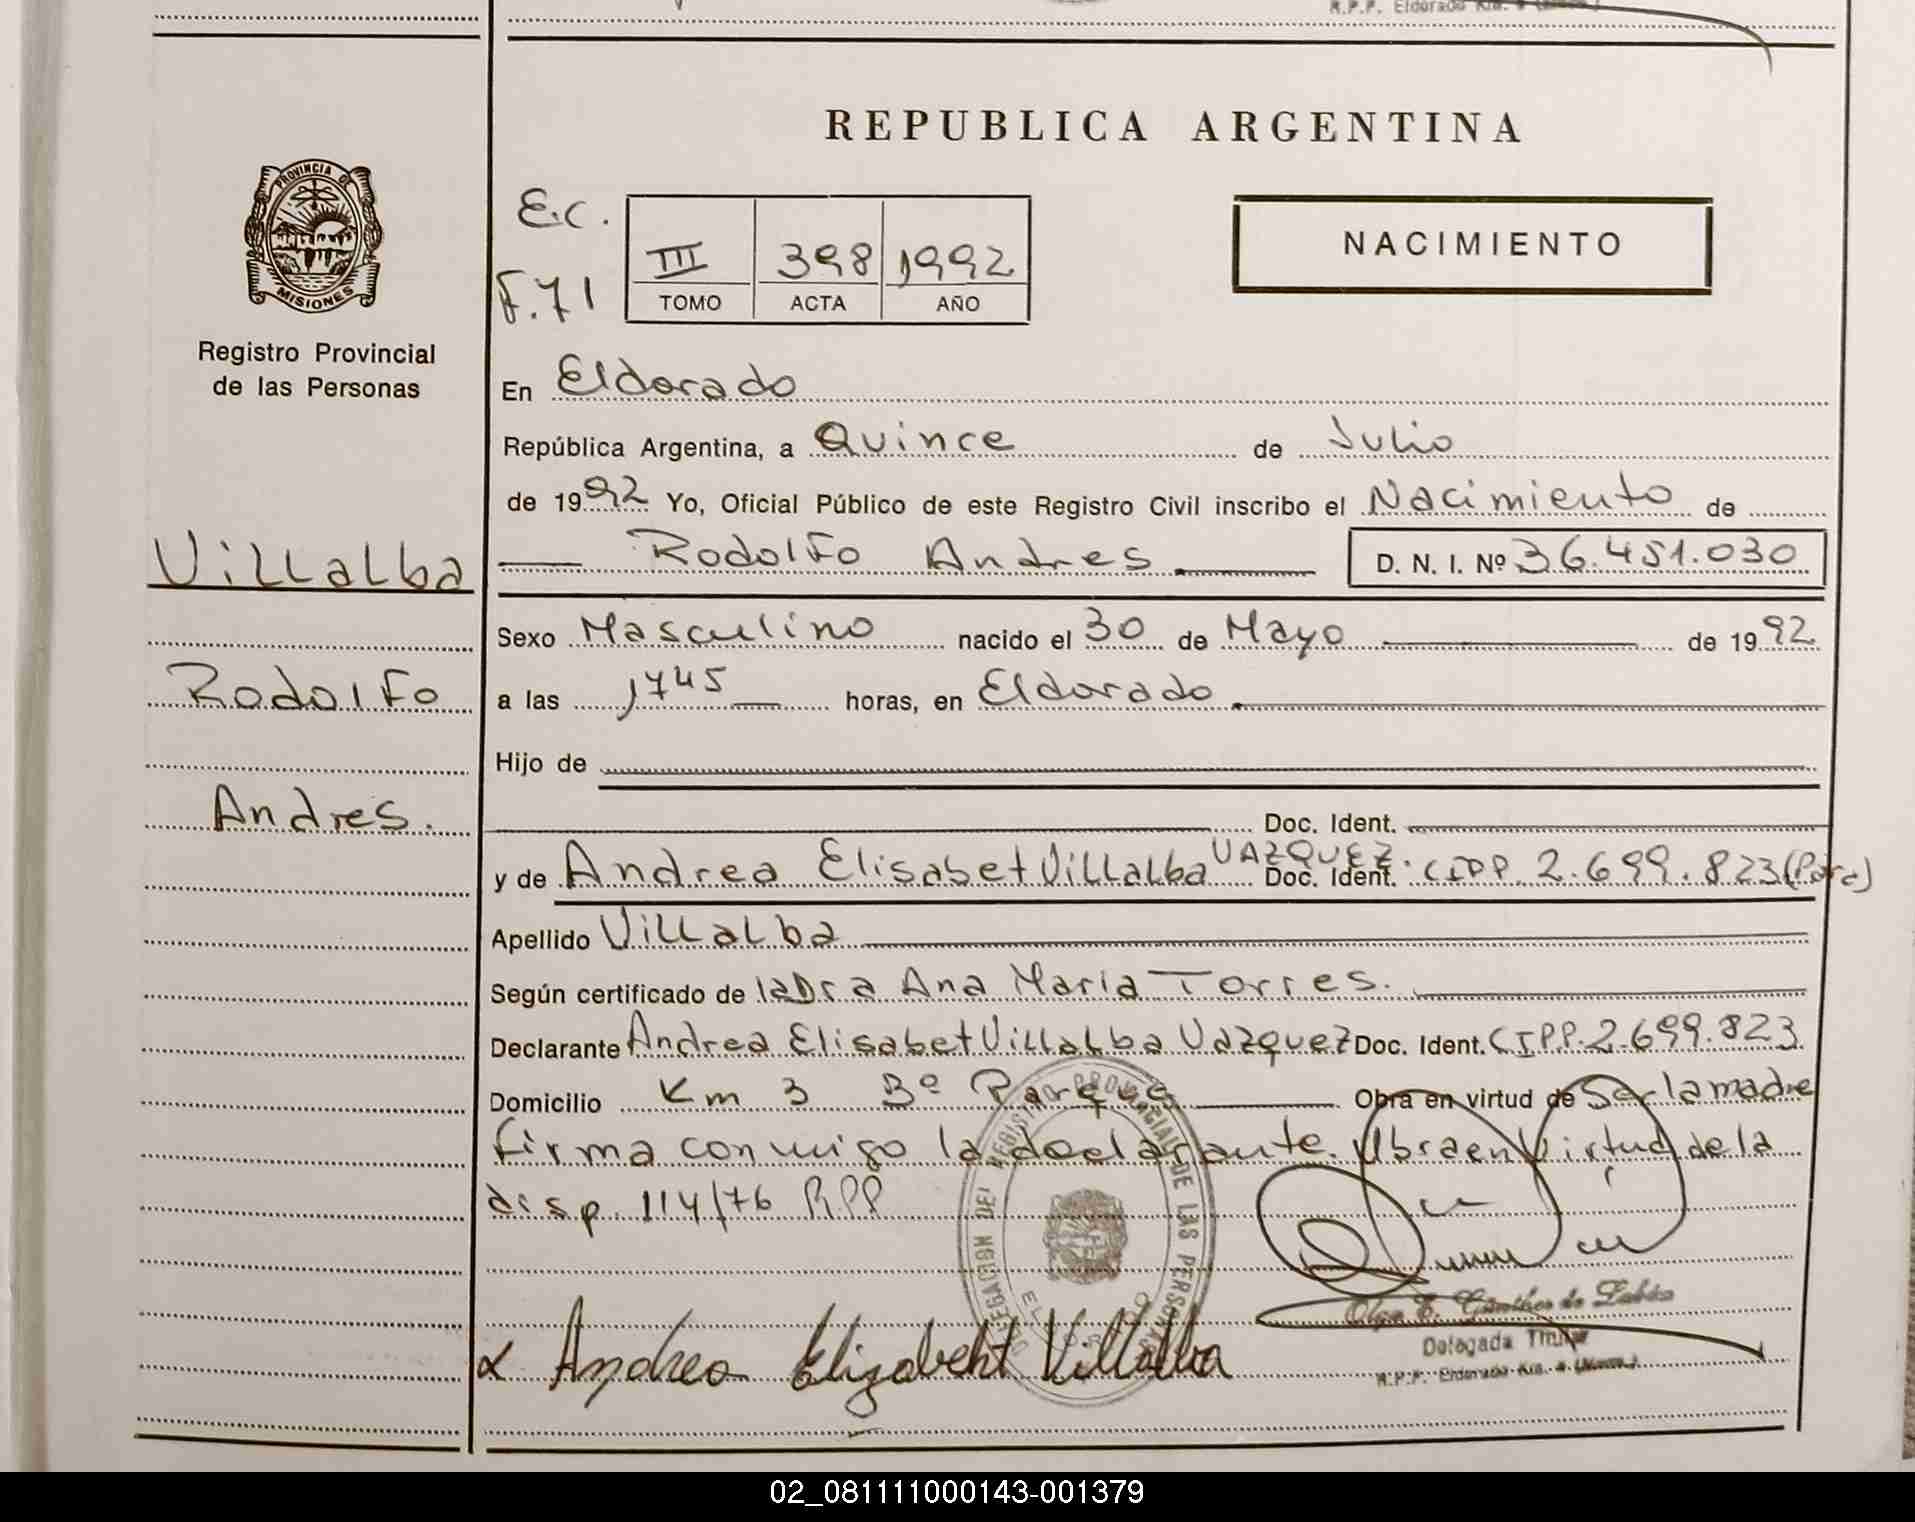 R.P.P. Eldorado Km.
REPUBLICA ARGENTINA
PROVINCIA DE
MISIONES
Registro Provincial
de las Personas
E.C.
F.71
III 398 1992
TOMO ACTA AÑO
NACIMIENTO
En Eldorado
República Argentina, a Quince de Julio
de 1992 Yo, Oficial Público de este Registro Civil inscribo el Nacimiento de
Villalba
Rodolfo Andres D. N. I. Nº 36.451.030
Sexo Masculino nacido el 30 de Mayo de 1992
Rodolfo
a las 1745 horas, en Eldorado
Hijo de
Andres.
Doc. Ident.
y de Andrea Elisabet Villalba VAZQUEZ. Doc. Ident. CIPP. 2.699.823 (Para)
Apellido Villalba
Según certificado de la Dra Ana Maria Torres.
Declarante Andrea Elisabet Villalba Vazquez Doc. Ident. CIPP. 2.699.823
Domicilio Km 3 Bº Parque Obra en virtud de Ser la madre
firma conmigo la declarante. Obra en Virtud de la
disp. 114/76 RPP
DELEGACION DEL REGISTRO PROVINCIAL DE LAS PERSONAS
Andrea Elizabeht Villalba
Olga E. Günther de
Delegada Titular
R.P.P. Eldorado Km. 4
02_081111000143-001379